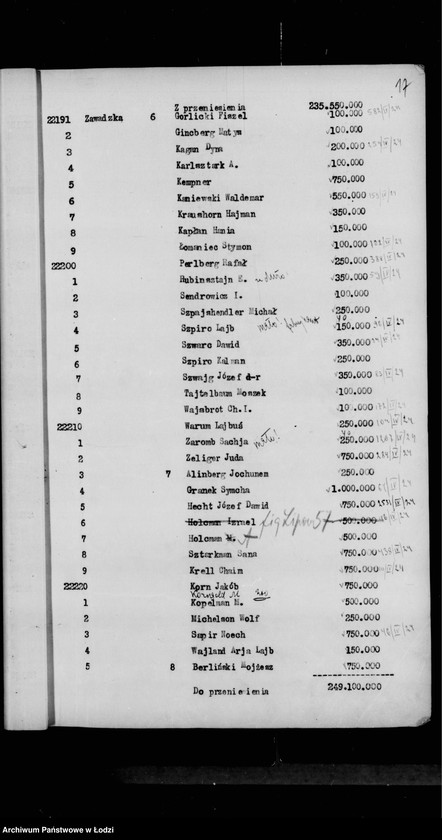 17
Z przeniesienia 235.550.000
22191 Zawadzka 6 Gorlicki Fiszel 100.000
2 Gincberg Matys 100.000
3 Kagan Dyna 200.000
4 Karlsztark A. 100.000
5 Kempner 750.000
6 Kaniewski Waldemar 550.000
7 Kraushorn Hajman 350.000
8 Kapłan Hania 150.000
9 Łomaniec Szymon 100.000
22200 Perlberg Rafał 250.000
1 Rubinsztajn 350.000
2 Sendrowicz I. 100.000
3 Szpajshendler Michał 250.000
4 Szpiro Lajb 150.000
5 Szwarc Dawid 350.000
6 Szpiro Kalman 250.000
7 Szwajg Józef d-r 350.000
8 Tajtelbaum Moszek 100.000
9 Wajsbrot Ch.I. 100.000
22210 Warum Lajbuś 250.000
1 Zaromb Szchja 250.000
2 Zeliger Juda 750.000
3 7 Alinberg Jochunem 250.000
4 Granek Symcha 1.000.000
5 Hecht Józef Dawid 750.000
6 Holcman Izrael 500.000
7 Holcman M. 500.000
8 Szterkman Sana 750.000
9 Krell Chaim 750.000
22220 Korn Jakób 750.000
1 Kopelman M. 500.000
2 Michelson Wolf 250.000
3 Sapir Noech 750.000
4 Wajland Arja Lajb 150.000
5 8 Berliński Mojżesz 750.000
Do przeniesienia 249.100.000
Archiwum Państwowe w Łodzi